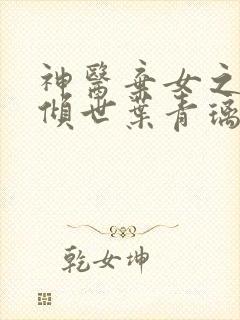 神醫棄女之
傾世葉青璃
乾女坤